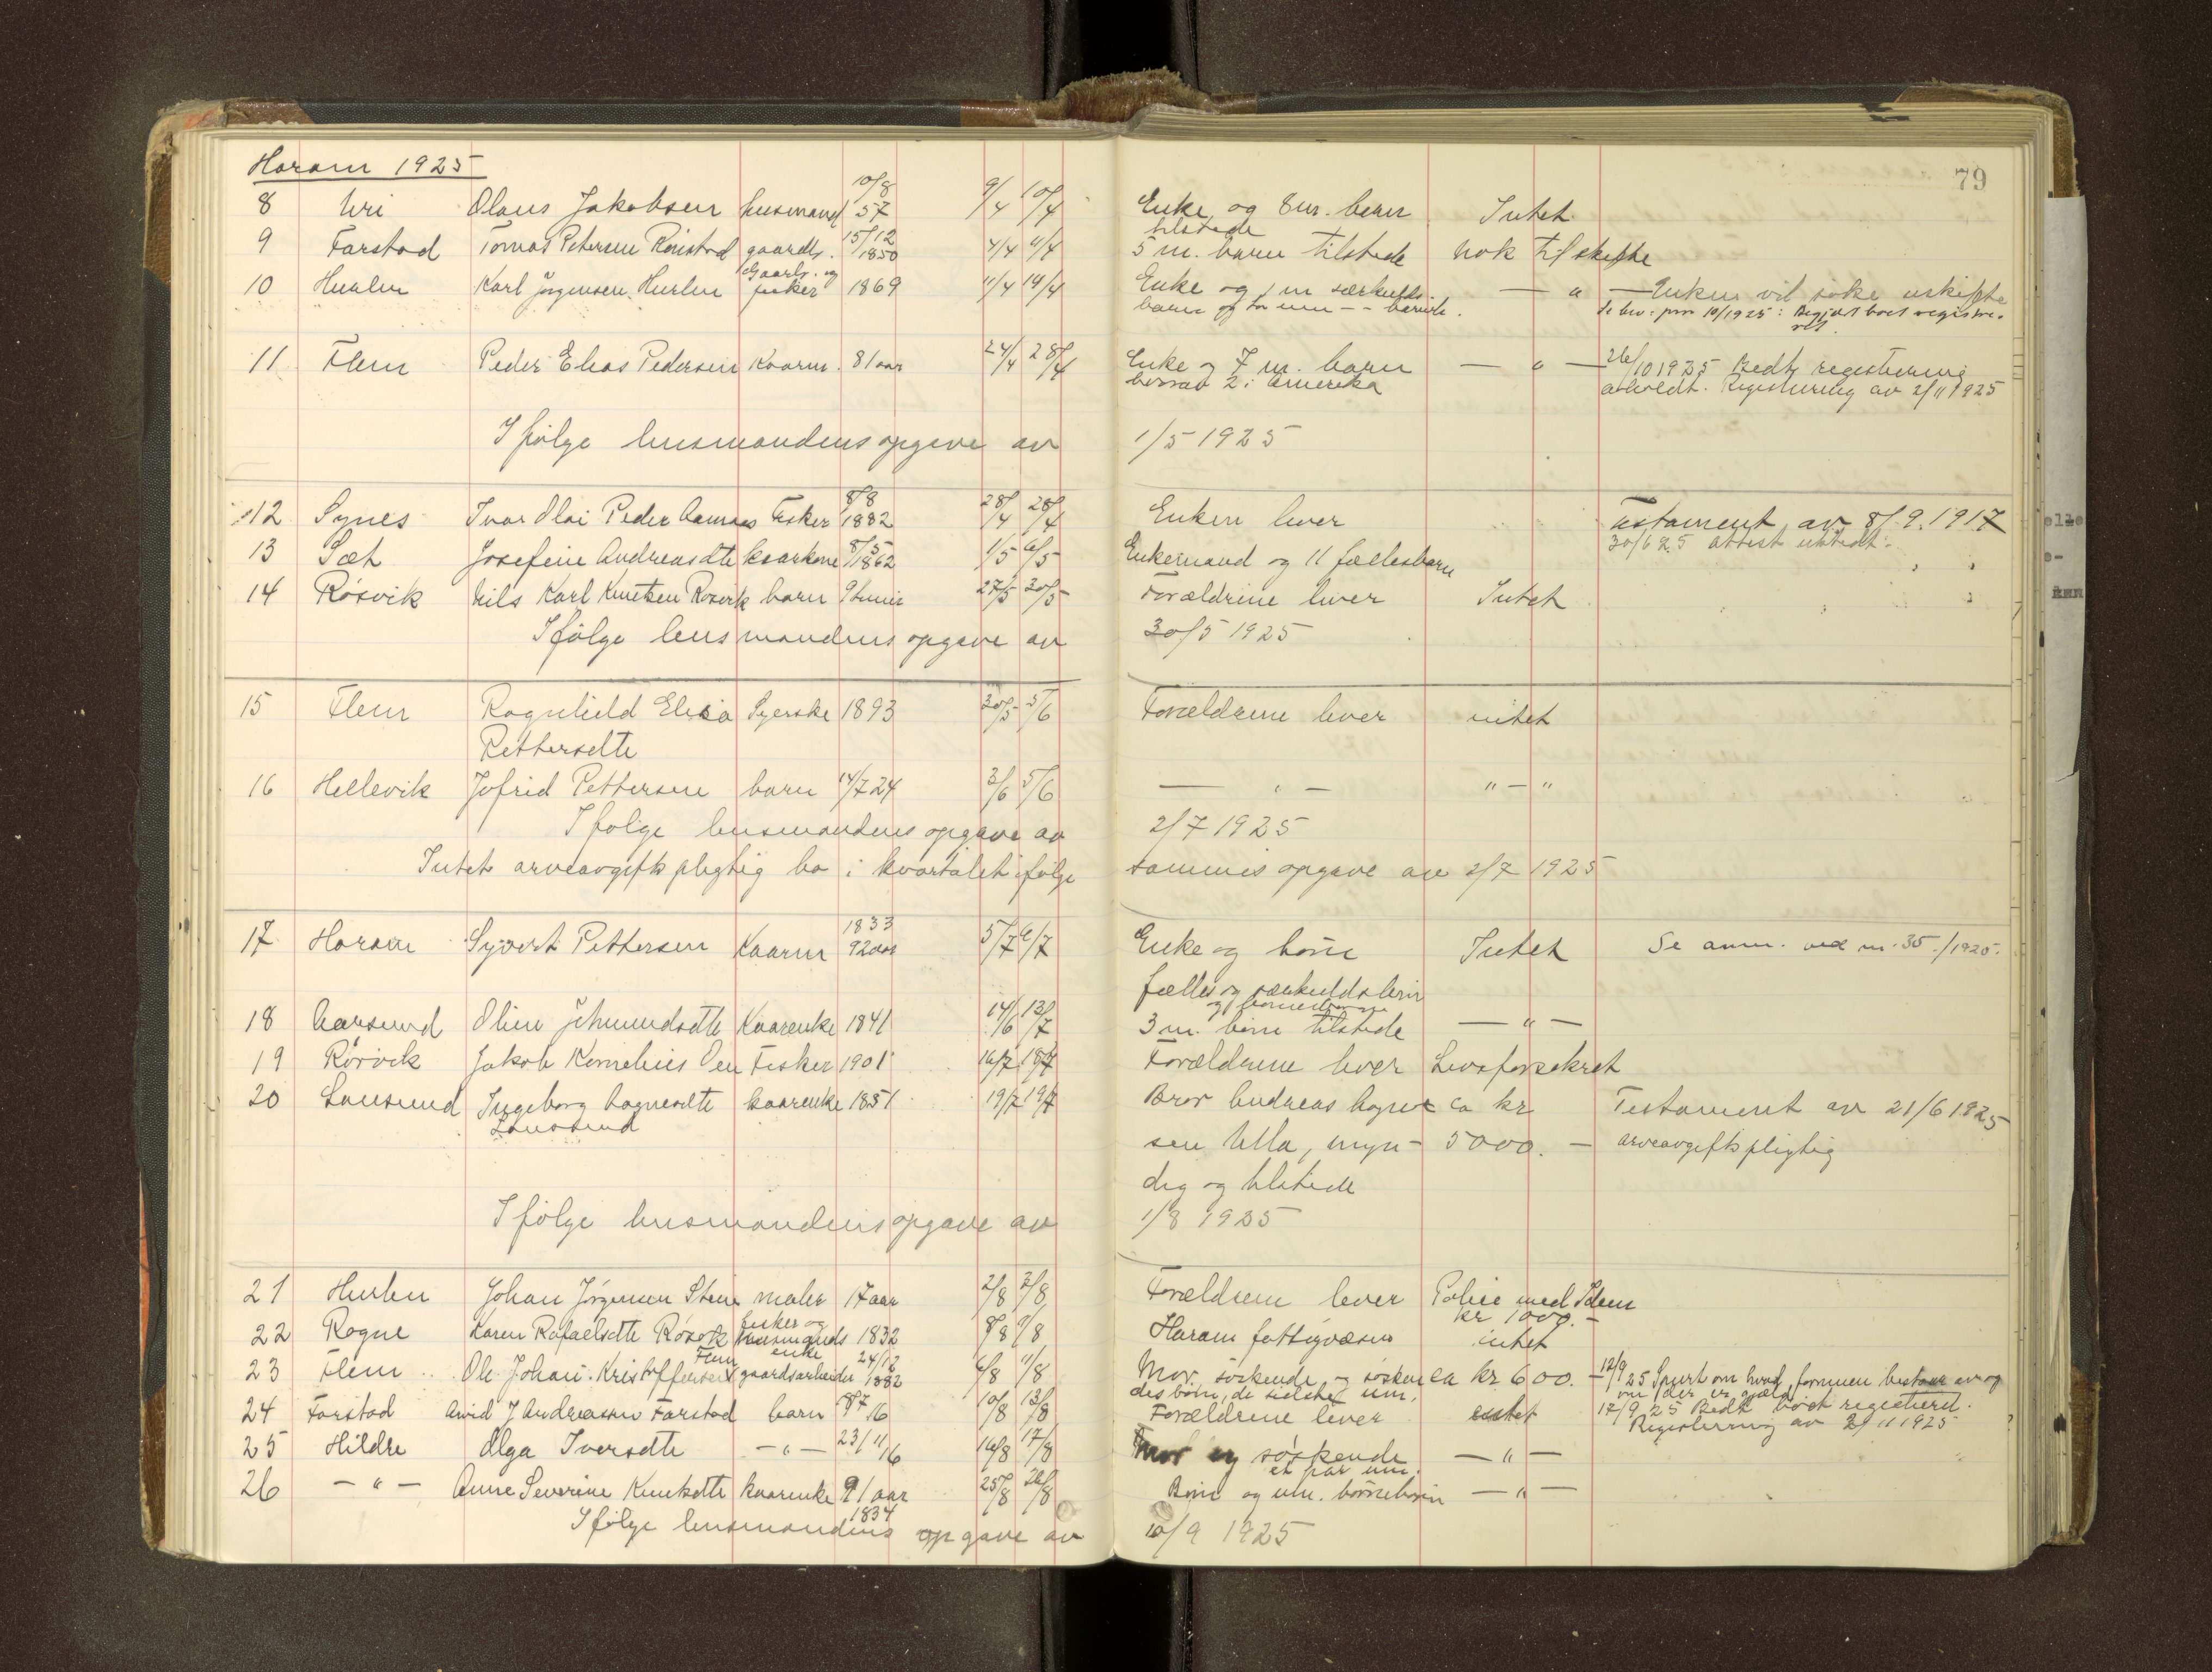 Haram 1925
79
8 Uri Olaus Jakobsen husmand 10/8 57 9/4 10/4 Enke og 8 um. børn tilstede Intet
9 Farstad Tomas Petersen Rønstad gaardbr. 15/12 1850 4/4 11/4 5 m. barn tilstede nok til skifte
10 Hurlen Karl Jørgensen Hurlen Gaardbr. og fisker 1869 11/4 14/4 Enke og 1 m særkulds- — " — Enken vil söke uskifte
barn og to um — " — børnebr. Se brev. prv 10/1925: Begjært boet registre-
ret
11 Flem Peder Elias Pedersen Kaarm. 81 aar 24/4 28/4 Enke og 7 m. barn — " — 26/10 1925 Bedt registrering
hvorav 2 i Amerika avholdt. Registrering av 2/11 1925
Ifølge lensmandens opgave av 1/5 1925
12 Synes Ivar Olai Peder Aamnes Fisker 8/8 1882 28/4 28/4 Enken lever Testament av 8/9.1917
30/6 25 attest utstedt.
13 Sæt Josefine Andreasdtr kaarkone 8/5 1862 1/5 6/5 Enkemand og 11 fællesbarn
14 Røsvik Nils Karl Knutsen Røsvik barn 9 timer 27/5 30/5 Forældrene lever Intet
Ifølge lensmandens opgave av 30/5 1925
15 Flem Ragnhild Elisa Syerske 1893 30/5 5/6 Forældrene lever intet
Pettersdtr
16 Hellevik Jofrid Pettersen barn 14/7 24 3/6 5/6 — " — " — "
Ifølge lensmandens opgave av 2/7 1925
Intet arveavgiftspligtig bo i kvartalet ifølge sammes opgave av 2/7 1925
17 Haram Syvert Pettersen Kaarm 1833 92 aar 5/7 6/7 Enke og børn Intet Se anm. ved nr. 35./1925.
fælles og særkuldsbørn
og børnebørn
18 Aarsund Oline Johnundsdtr Kaarenke 1841 14/6 13/7 3 m. børn tilstede — " —
19 Rørvik Jakob Kornelius Oen Fisker 1901 16/7 18/7 Forældrene lever Livsforsekret
20 Lausund Ingeborg Aagnesdtr kaarenke 1851 19/7 19/7 Bror Andreas Aagne- ca kr Testament av 21/6 1925
Lausund sen Ulla, myn- 5000. — arveavgiftspligtig
dig og tilstede
Ifølge lensmandens opgave av 1/8 1925
21 Hurlen Johan Jørgensen Stene maler 17 aar 2/8 3/8 Forældrene lever Police med Idun
kr 1000.-
22 Rogne Karen Rafaelsdtr Røsok fisker og husmands enke 1832 8/8 9/8 Haram fattigvæsen intet
23 Flem Ole Johan Kristoffersen Flem gaardsarbeider 24/12 1882 6/8 11/8 Mor, søskende og søsken- ca kr 600. — 12/9 25 Spurt om hvad formuen bestaar av og
des børn, de sidste um. om der er gjæld
24 Farstad Arvid J Andreassen Farstad barn 8/7 16 10/8 13/8 Forældrene lever intet 17/9 25 Bedt boet registreret.
Registrering av 2/11 1925
25 Hildre Olga Iversdtr — " — 23/11 16 16/8 17/8 Mor og søskende — " —
et par um.
26 — " — Anne Severine Knutsdtr kaarenke 91 aar 1834 25/8 26/8 Børn og um. børnebørn — " —
Ifølge lensmandens opgave av 10/9 1925
elle
e-
ENN